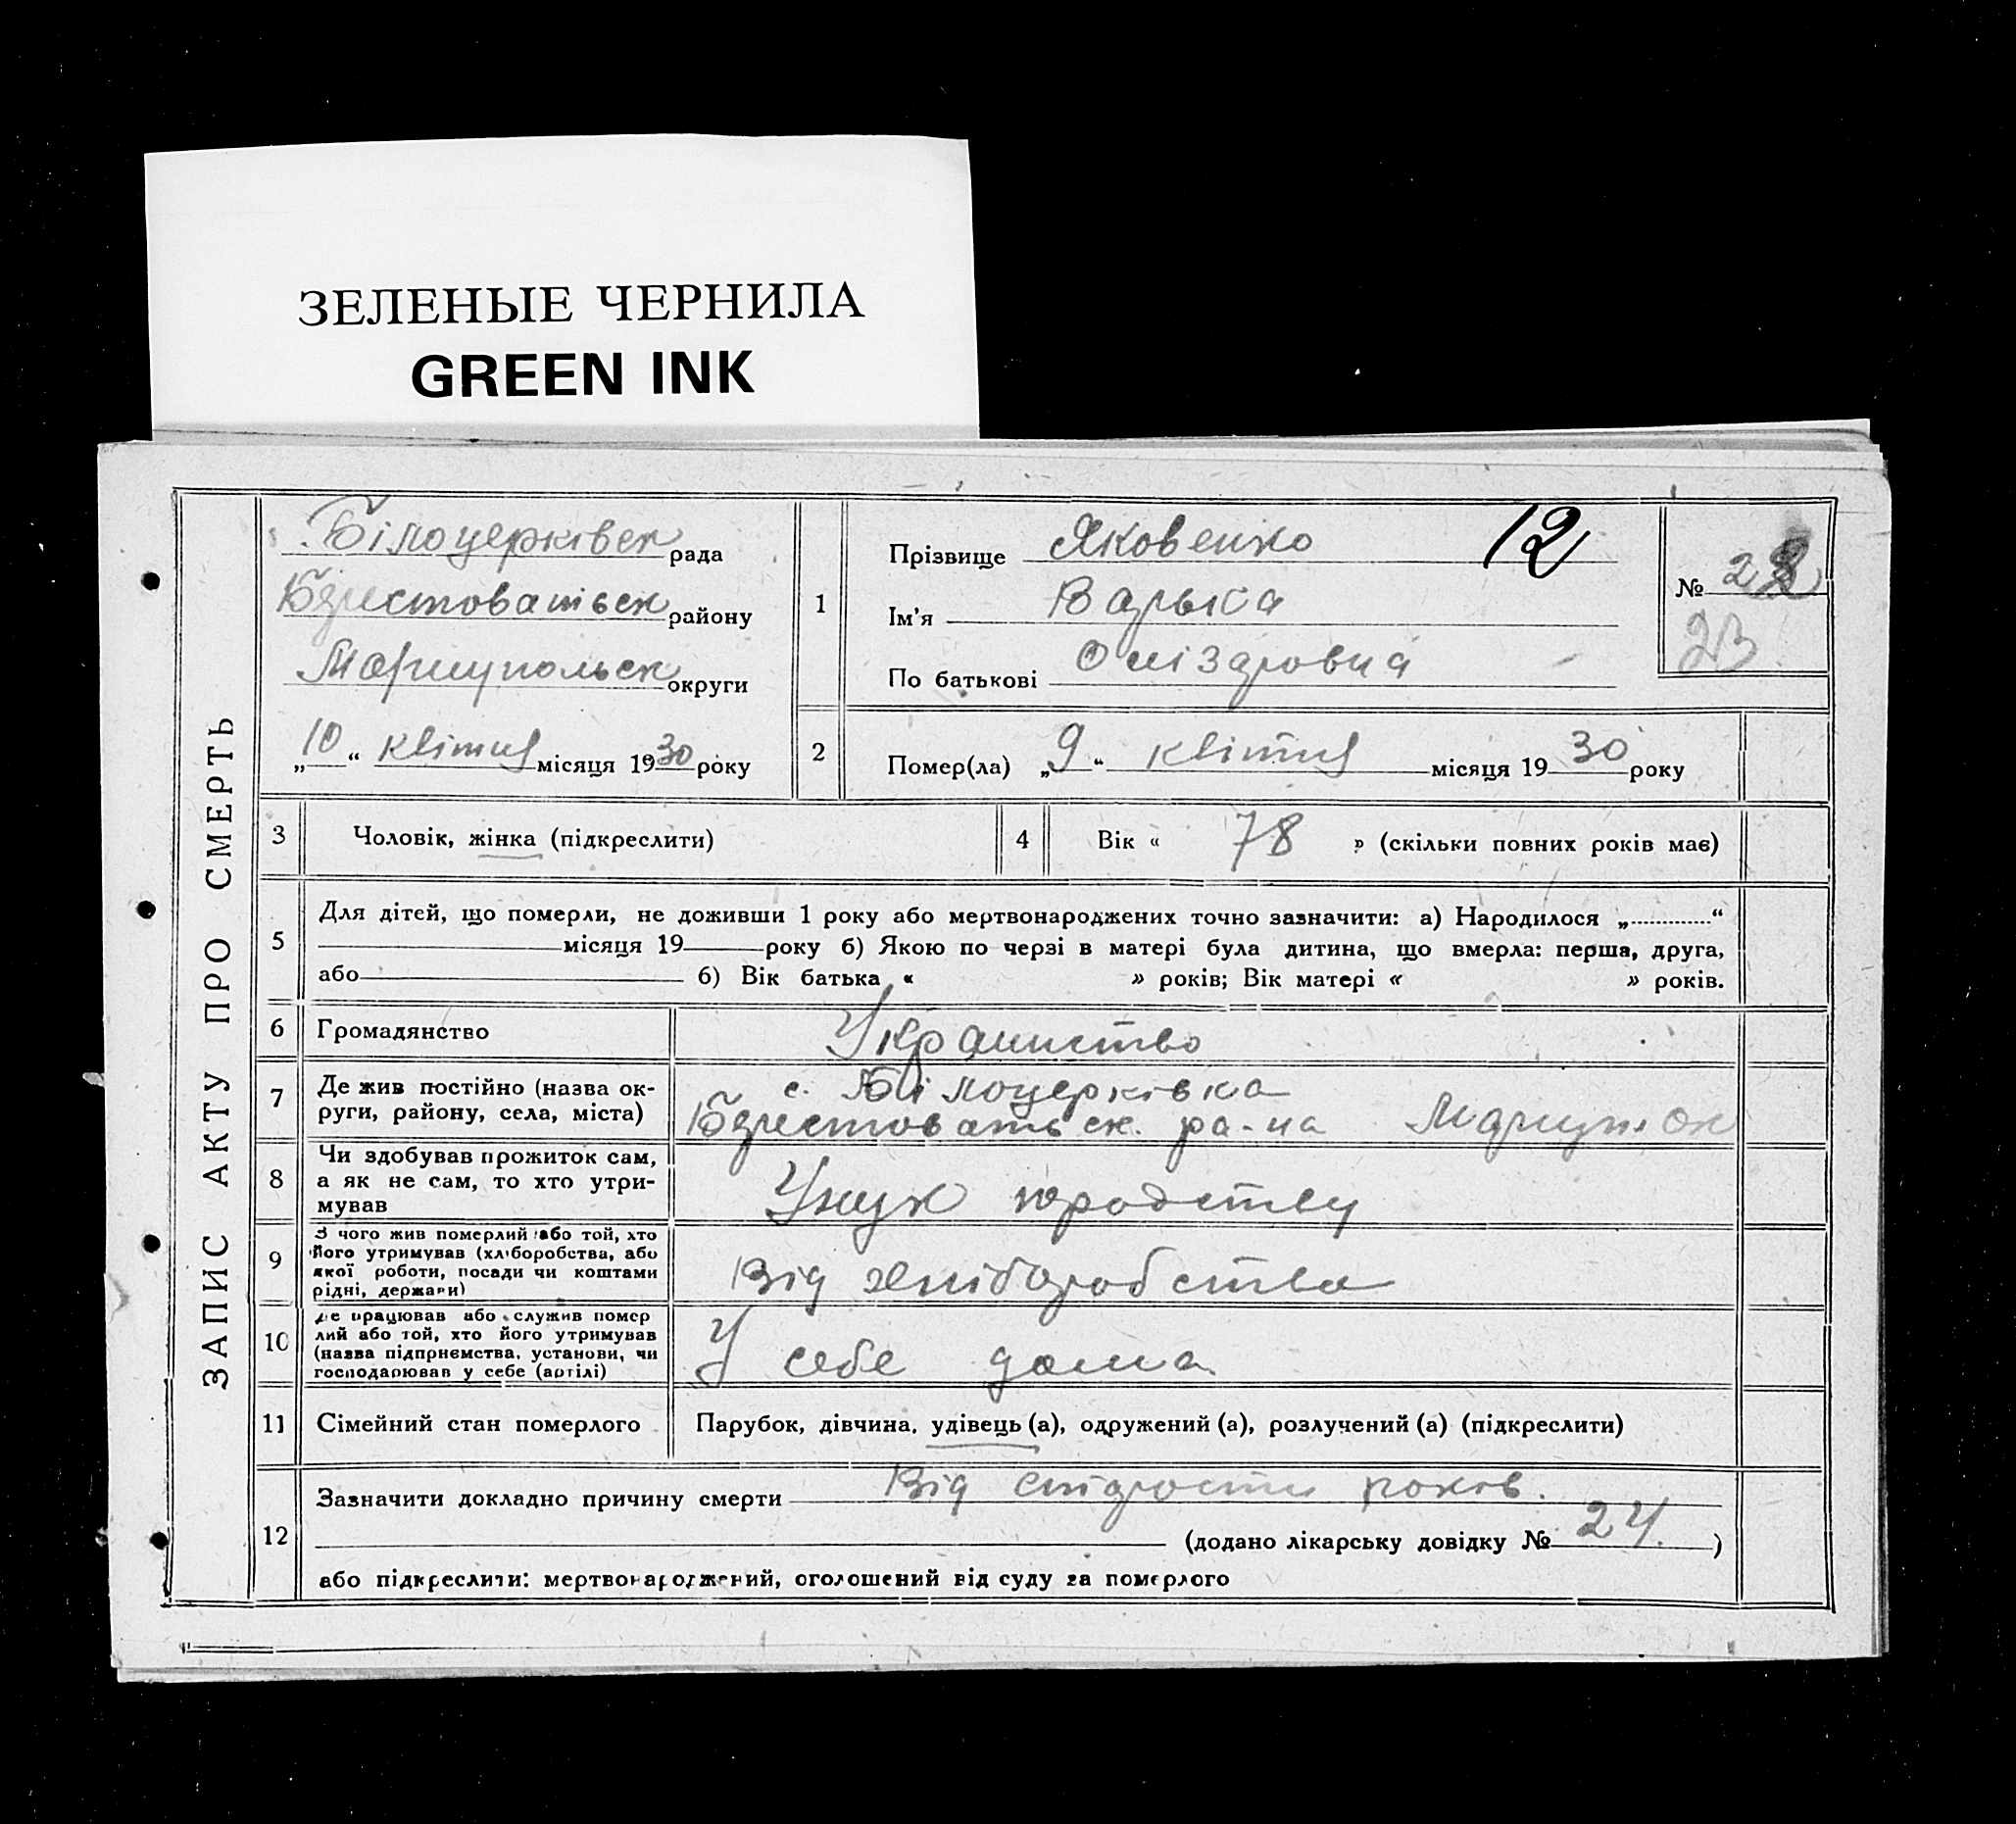 ЗЕЛЕНЫЕ ЧЕРНИЛА
GREEN INK
ЗАПИС АКТУ ПРО СМЕРТЬ
Білоцерківск рада
району
Маріупольск округи
„10“ квітня місяця 1930 року
1
Прізвище Яковенко 12
Ім'я
По батькові
№ 22
23
2
Помер(ла) „9“ квітня місяця 1930 року
3
Чоловік, жінка (підкреслити)
4
Вік « 78 » (скільки повних років має)
5
Для дітей, що померли, не доживши 1 року або мертвонароджених точно зазначити: а) Народилося „ “
місяця 19 року б) Якою по черзі в матері була дитина, що вмерла: перша, друга,
або б) Вік батька « » років; Вік матері « » років.
6
Громадянство
7
Де жив постійно (назва ок-
руги, району, села, міста)
с. Білоцерківка
ра-на
8
Чи здобував прожиток сам,
а як не сам, то хто утри-
мував
Унук
9
З чого жив померлий або той, хто
його утримував (хліборобства, або
якої роботи, посади чи коштами
рідні, держави)
Від хліборобства
10
Де працював або служив помер
лий або той, хто його утримував
(назва підприємства, установи, чи
господарював у себе (артілі)
У себе дома
11
Сімейний стан померлого
Парубок, дівчина, удівець (а), одружений (а), розлучений (а) (підкреслити)
12
Зазначити докладно причину смерти Від старости років.
(додано лікарську довідку № 24.)
або підкреслити: мертвонароджений, оголошений від суду за померлого